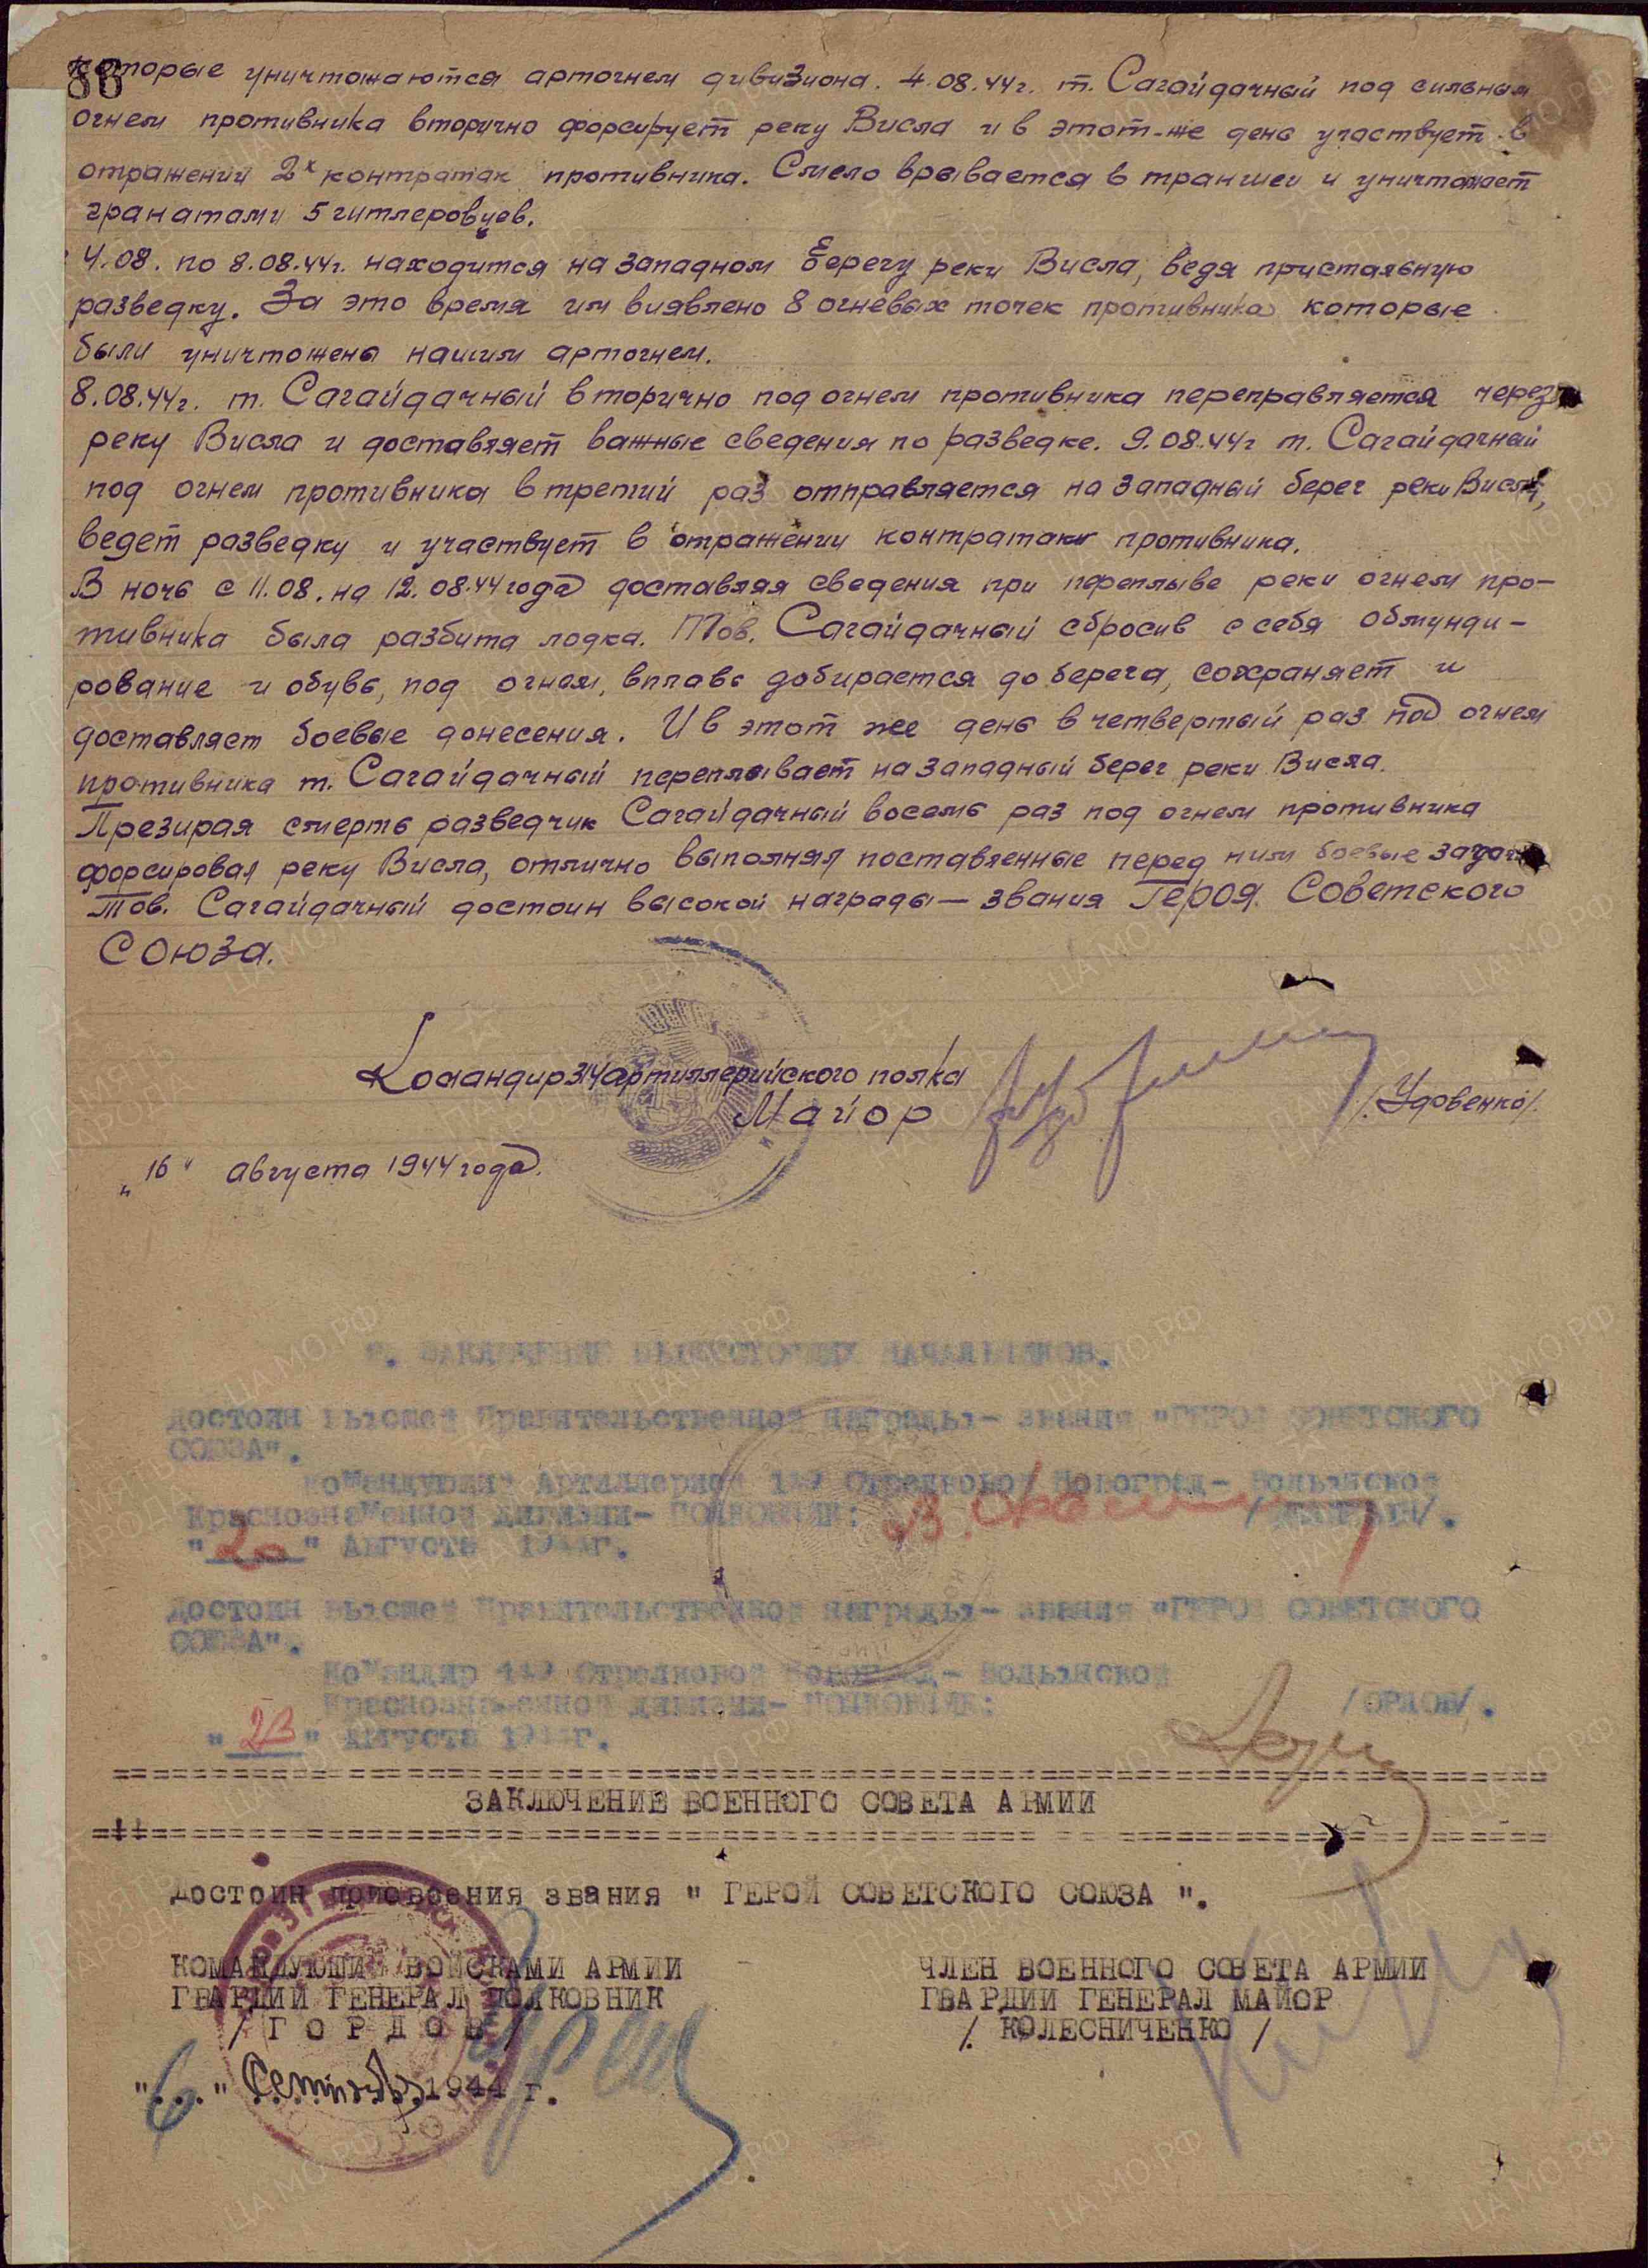 86
которые уничтожаются артогнем дивизиона. 4.08.44г. т. Сагайдачный под сильным
огнем противника вторично форсирует реку Висла и в этот-же день участвует в
отражении 2х контратак противника. Смело врывается в траншеи и уничтожает
гранатами 5 гитлеровцев.
4.08. по 8.08.44г. находится на западном берегу реки Висла, ведя пристальную
разведку. За это время им виявлено 8 огневых точек противника которые
были уничтожены нашим артогнем.
8.08.44г. т. Сагайдачный вторично под огнем противника переправляется через
реку Висла и доставляет важные сведения по разведке. 9.08.44г т. Сагайдачный
под огнем противника в третий раз отправляется на западный берег реки Висла,
ведет разведку и участвует в отражении контратаки противника.
В ночь с 11.08. на 12.08.44 года доставляя сведения при переплыве реки огнем про-
тивника была разбита лодка. Тов. Сагайдачный сбросив с себя обмунди-
рование и обувь, под огнем, вплавь добирается до берега, сохраняет и
доставляет боевые донесения. И в этот же день в четвертый раз под огнем
противника т. Сагайдачный переплывает на западный берег реки Висла.
Презирая смерть разведчик Сагайдачный восемь раз под огнем противника
форсировал реку Висла, отлично выполнял поставленные перед ним боевые задачи
Тов. Сагайдачный достоин высокой награды — звания Героя Советского
Союза.
Командир 314 артиллерийского полка
Майор /Удовенко/.
"16" августа 1944 года.
ЗАКЛЮЧЕНИЕ ВЫШЕСТОЯЩИХ НАЧАЛЬНИКОВ.
Достоин высшей Правительственной награды- звания "ГЕРОЯ СОВЕТСКОГО
СОЮЗА".
Командующий Артиллерией Стрелковой Новоград- Волынской
Краснознаменной дивизии- ПОЛКОВНИК:
"20" Августа 1944г.
Достоин высшей Правительственной награды- звания "ГЕРОЯ СОВЕТСКОГО
СОЮЗА".
Командир Стрелковой Новоград- Волынской
Краснознаменной дивизии- ПОЛКОВНИК: /ОРЛОВ/.
"23" Августа 1944г.
ЗАКЛЮЧЕНИЕ ВОЕННОГО СОВЕТА АРМИИ
Достоин присвоения звания " ГЕРОЙ СОВЕТСКОГО СОЮЗА ".
КОМАНДУЮЩИЙ ВОЙСКАМИ АРМИИ
ГВАРДИИ ГЕНЕРАЛ ПОЛКОВНИК
/ Г О Р Д О В /
"6" Сентября 1944 г.
ЧЛЕН ВОЕННОГО СОВЕТА АРМИИ
ГВАРДИИ ГЕНЕРАЛ МАЙОР
/ КОЛЕСНИЧЕНКО /